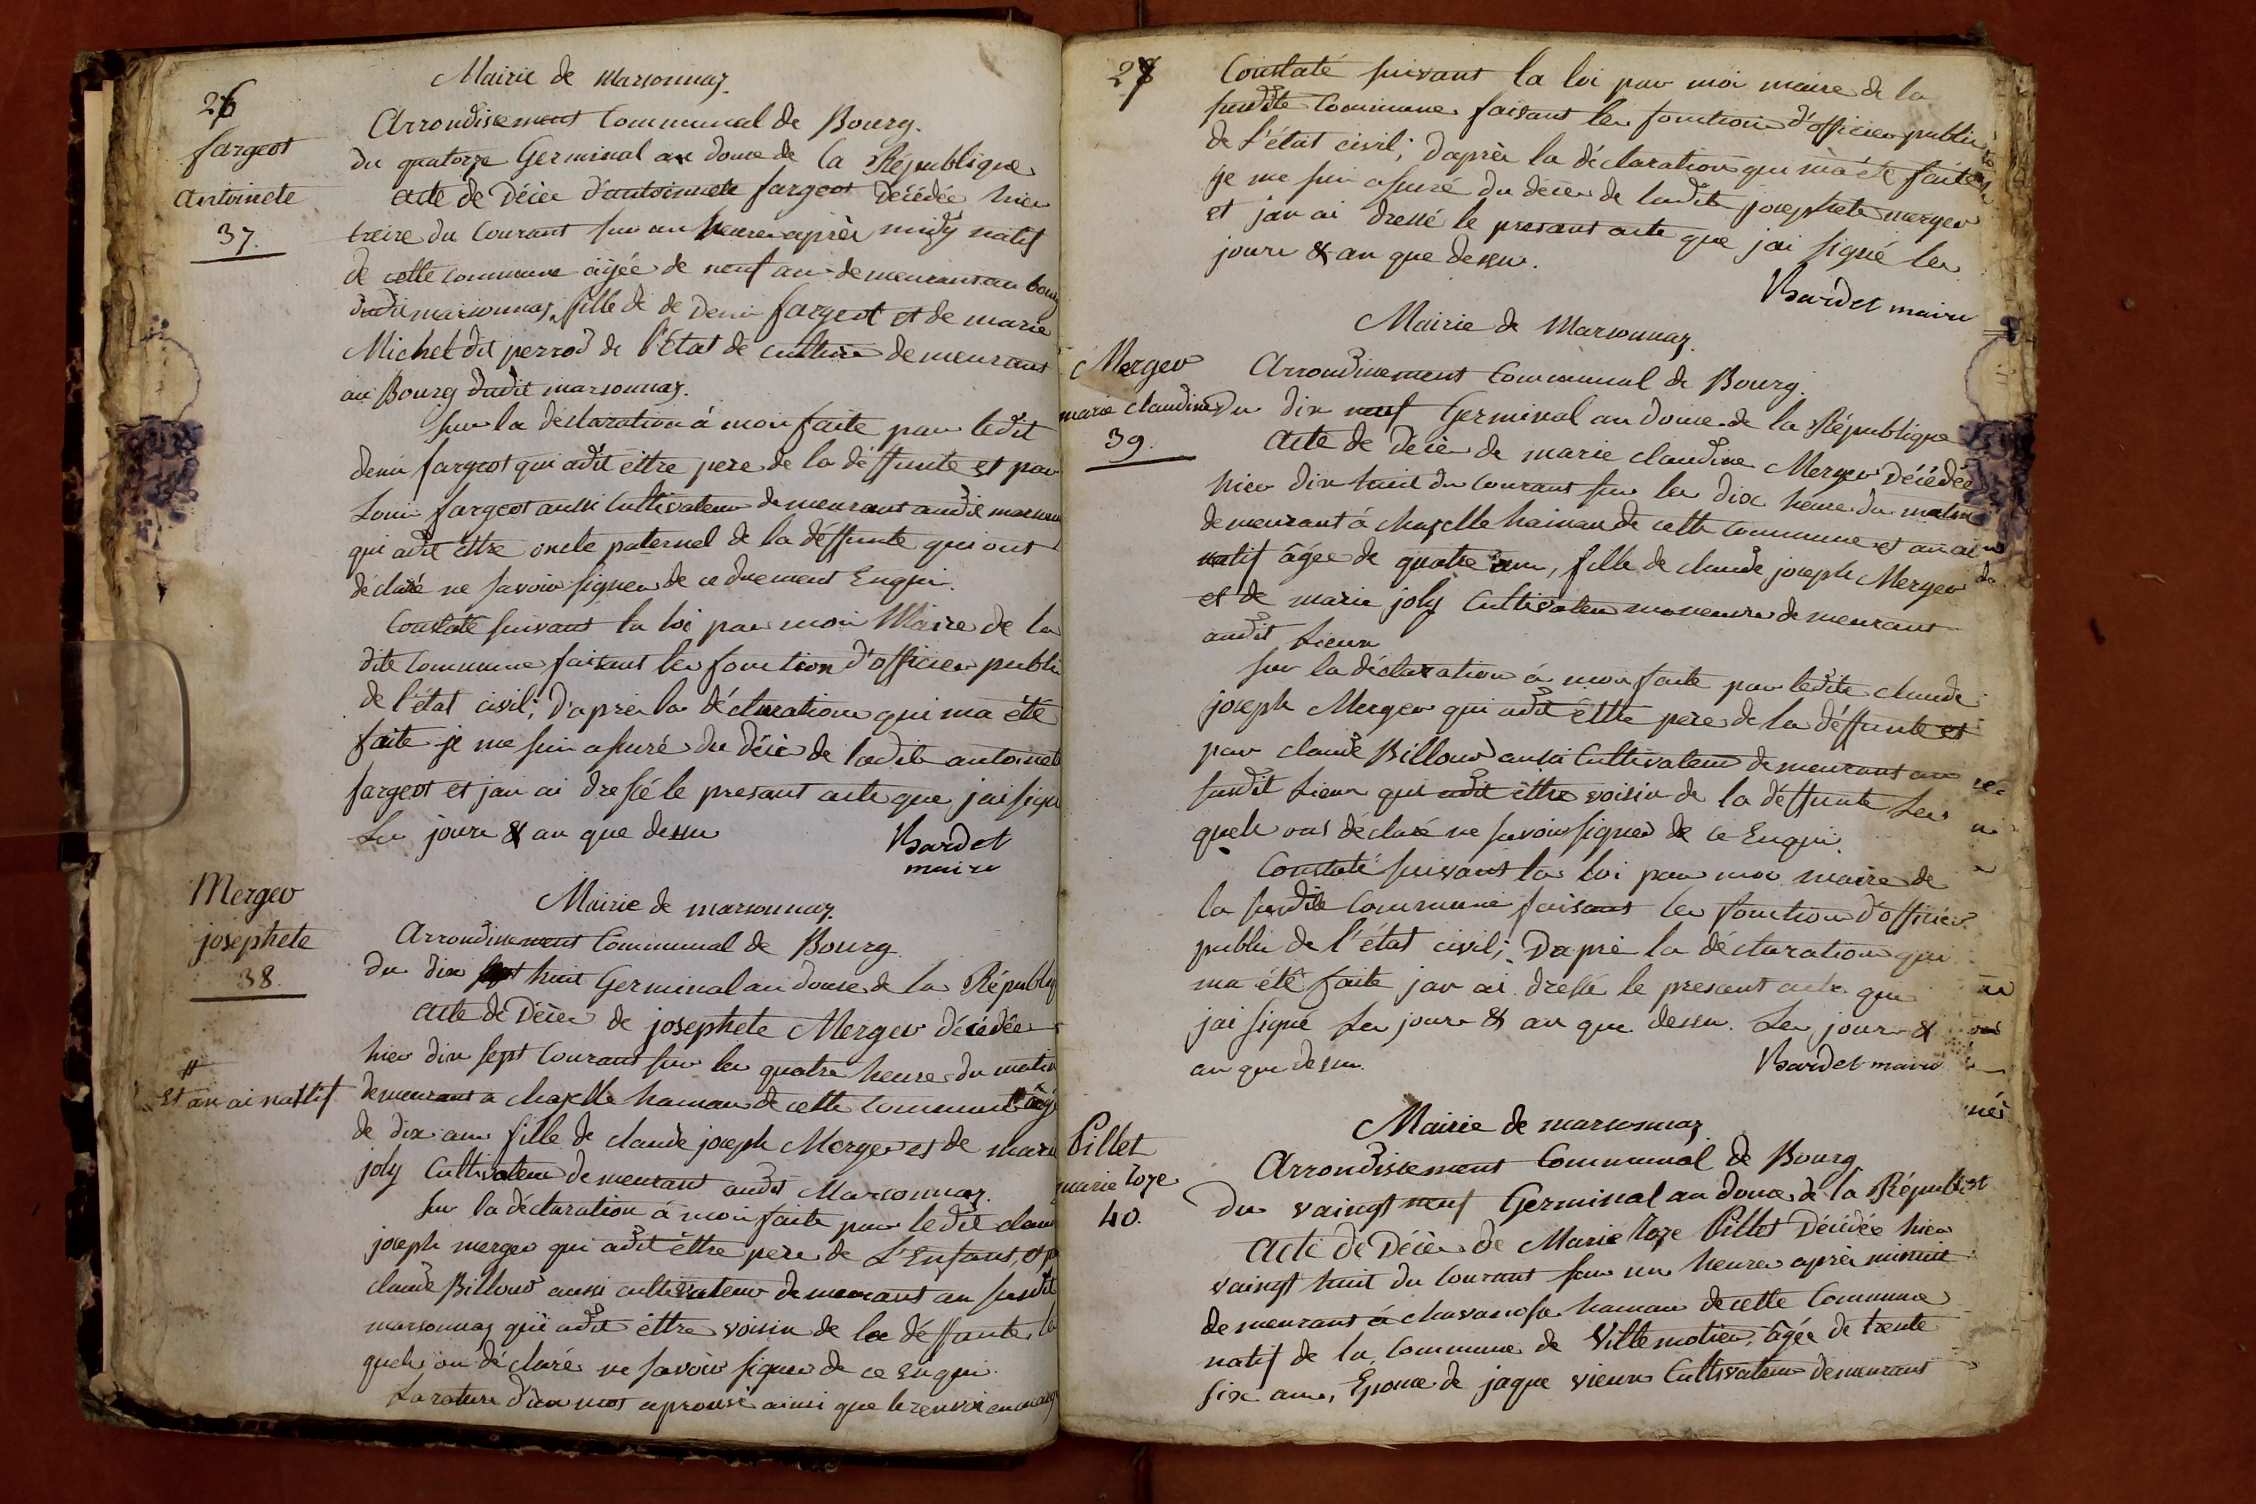 26
fargeot
Antoinete
37.
Mairie de marsonnaz.
Arrondisement Communal de Bourg.
du quatorze Germinal an douze de la République
acte de Décès d'antoinnete fargeot Décédée hier
treize du Courant sur un heure après midy natif
de cette commune âgée de neuf an demeurant au bourg
dudit marsonnaz, fille de de Denis fargeot et de marie
Michel dit perrod de l'état de culture demeurant
au Bourg dudit marsonnaz.
sur la déclaration à moi faite par ledit
denis fargeot qui a dit êttre pere de la déffunte et par
Louis fargeot aussi Cultivateur demeurant audit marsonn
qui a dit êttre oncle paternel de la déffunte qui ont
déclaré ne savoir signer de ce duement Enquis.
Constaté suivant la loi par moi Maire de la
dite Commune faisant les fonction d'officier public
de l'état civil; d'après la déclaration qui ma été
faite je me suis assuré du décès de ladite antoinete
fargeot et jan ai dressé le present acte que jai signé
Les jours & an que dessu
Bardet
maire
Mergev
josephete
38.
Mairie de marsonnaz.
Arrondinement Communal de Bourg
du dix sept huit Germinal an douze de la Républiq
acte de Décès de josephete Mergev décédée
hier dix sept Courant sur les quatre heures du matin
# et an ai nattif
demeurant a chazelle hamau de cette Commune # âgé
de dix ans fille de claude joseph Mergev et de marie
joly Cultivateur demeurant audit Marsonnaz.
sur la déclaration à moi faite par ledit claude
joseph mergev qui a dit êttre pere de L'Enfant, et par
claude Billoud aussi cultivateur demeurant au susdit
marsonnaz qui a dit êttre voisin de la déffunte, les
quels on déclaré ne savoir signer de ce Enquis.
La rature d'un mot aprouvé ainsi que le renvoi en marge
27
Constaté suivant la loi par moi maire de la
susdite Commune faisant les fonction d'officier public
de l'état civil; d'après la déclaration qui m'a été faite
je me suis assuré du décès de ladite josephete mergev
et jan ai dressé le present acte que jai signé les
jours & an que dessu.
Bardet maire
Mergev
marie claudine
39.
Mairie de Marsonnaz.
Arrondinement Communal de Bourg.
Du dix neuf Germinal an douze de la République
Acte de Décès de marie claudine Mergev Décédée
hier dix huit du Courant sur les dix heures du matin
demeurant à chazelle hamau de cette Commune et an ai
natif âgée de quatre ans, fille de claude joseph Mergev
et de marie joly Cultivateur demeurant
audit Lieux
sur la déclaration à moi faite par ledite claude
joseph Mergev qui a dit êttre pere de la déffunte et
par claude Billoud aussi Cultivateur demeurant au
susdit Lieux qui a dit êttre voisin de la déffunte Les
quels ont déclaré ne savoir signer de ce Enquis.
Constaté suivant la loi par moi maire de
la susdite Commune faisant les fonction d'officier
public de l'état civil; Daprès la déclaration qui
ma été faite jan ai dressé le present acte que
jai signé Les jours & an que dessu. Les jours &
an que dessu.
Bardet maire
Pillet
marie roze
40.
Mairie de marsonnaz
Arrondissement Communal de Bourg
Du vaingt neuf Germinal an douze de la Républi
Acte de Décès de Marie Roze Pillet Décédée hier
vaingt huit du Courant sur un heures après minuit
demeurant à chavanosse hamau de cette Commune
natif de la Commune de Villemotier, âgée de trente
six ans, Epouse de jaque vieux Cultivateur demeurant